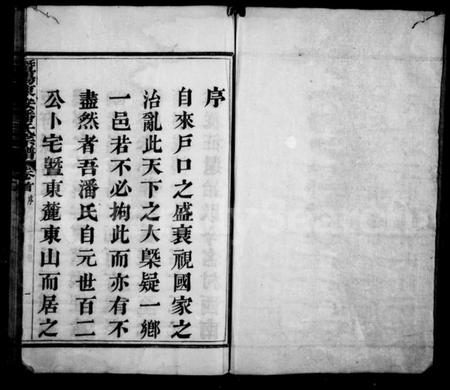 序
自來戶口之盛衰視國家之
治亂此天下之大槩疑一鄉
一邑若不必拘此而亦有不
盡然者吾潘氏自元世百二
公卜宅暨東麓東山而居之
東安潘氏宗譜
卷首
序
一